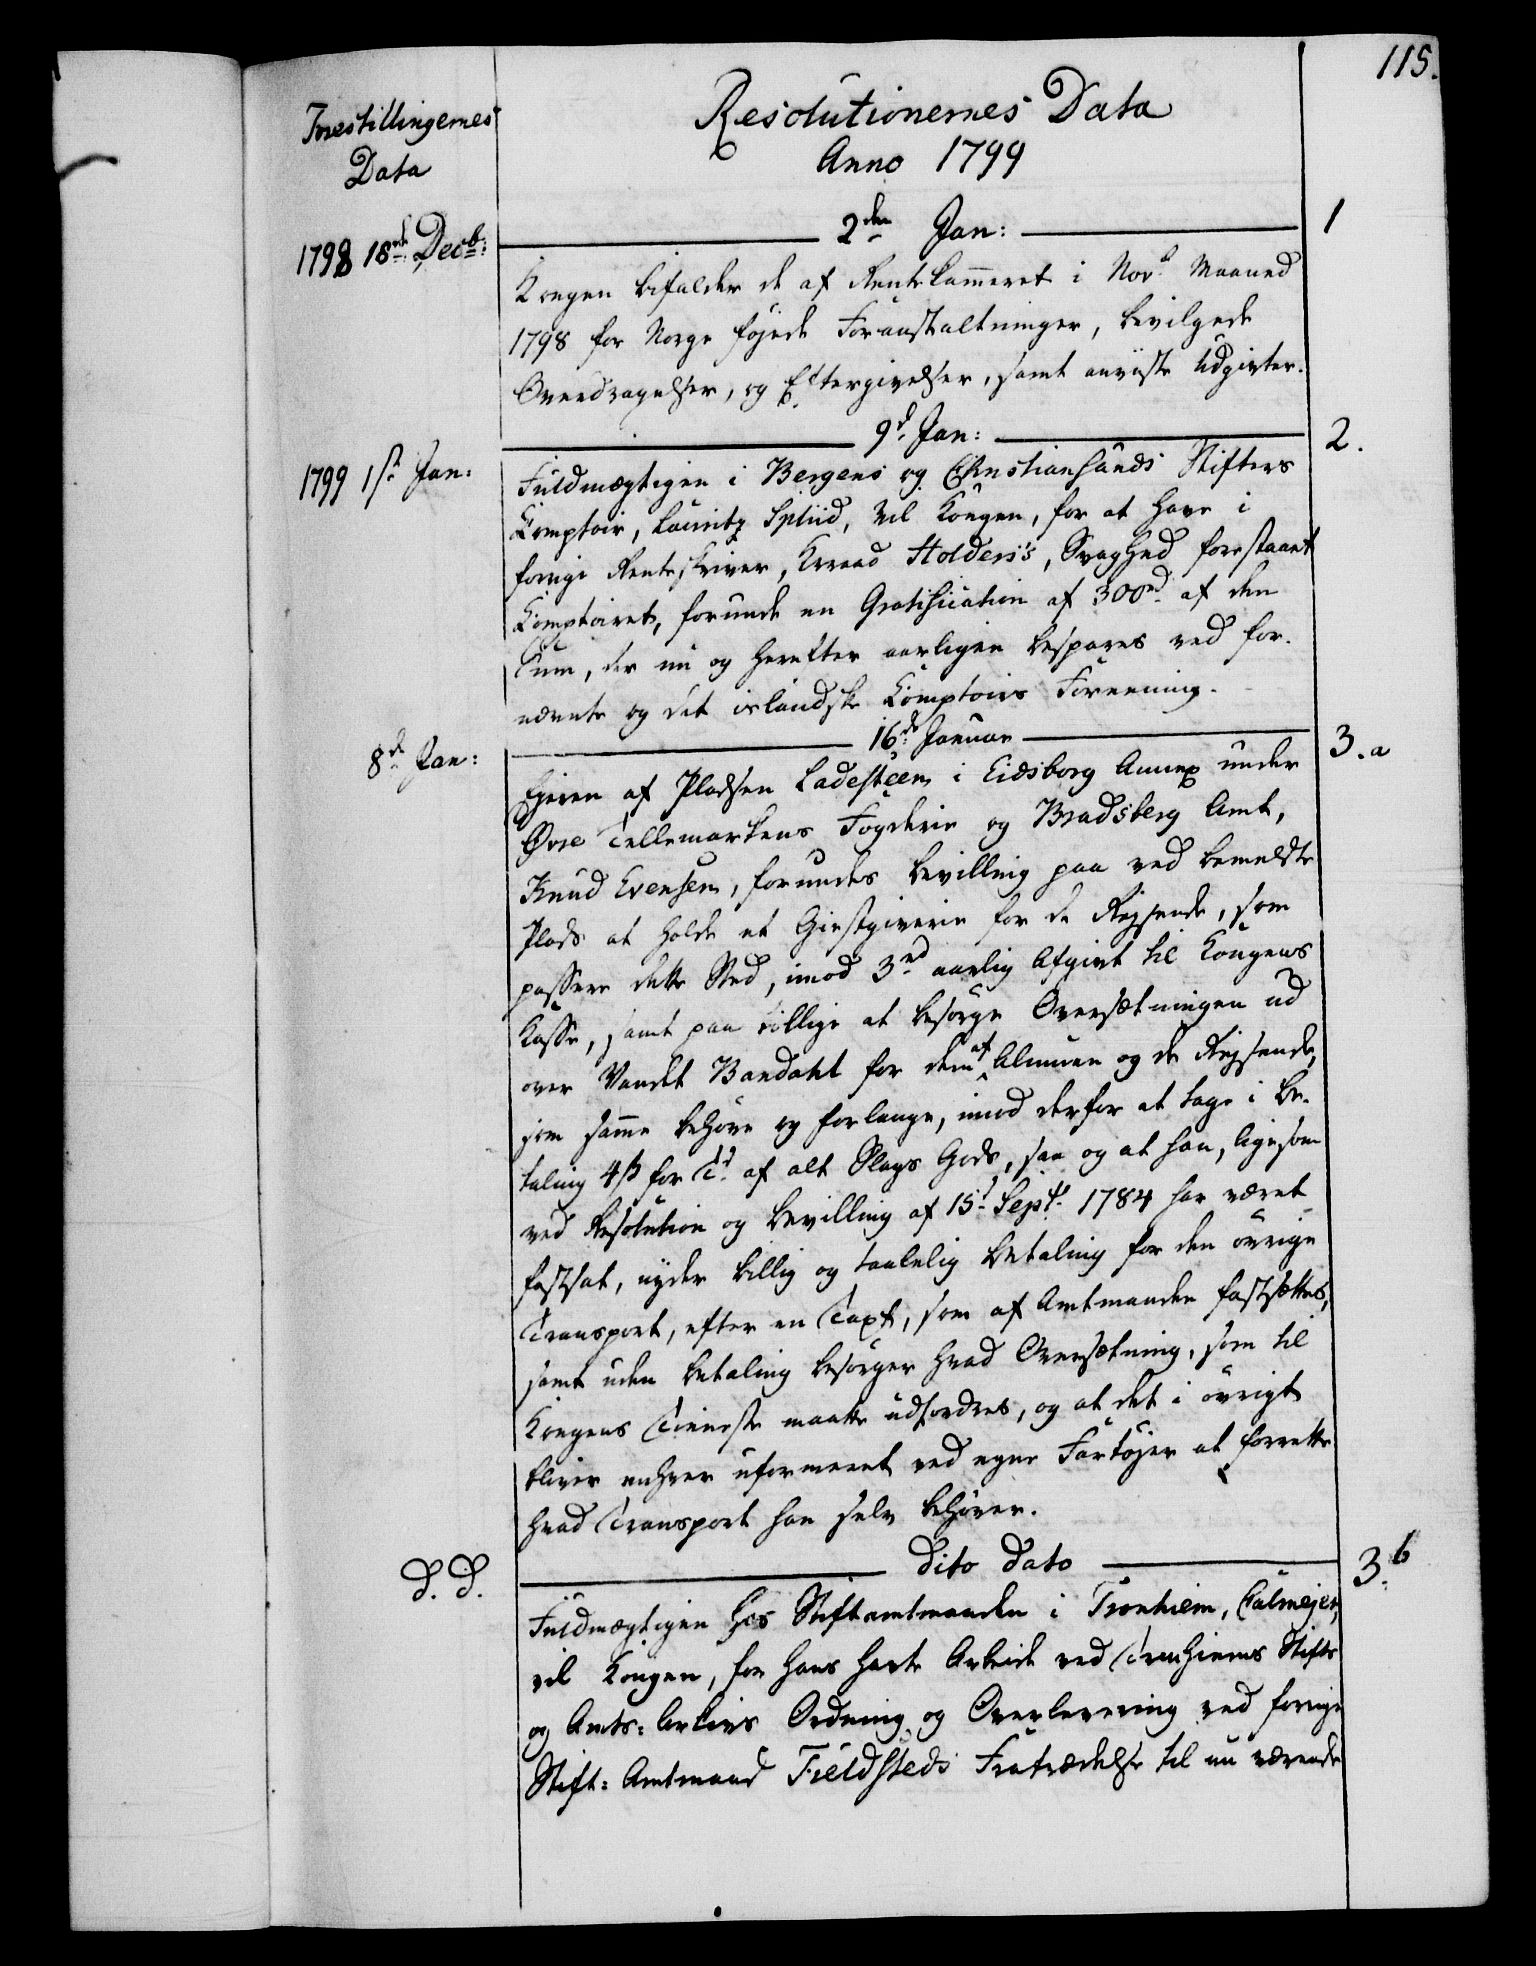 115.
Forestillingernes
Data
Resolutionernes Data
Anno 1799
1798 18de Decb:
2den Jan:
1
Kongen bifalder de af Rentekammeret i Novb Maaned
1798 for Norge föjede Foranstaltninger, bevilgede
Overdragelser, og Eftergivelser, samt anviiste Udgivter.
1799 1ste Jan:
9d Jan:
2.
Fuldmægtigen i Bergens og Christiansands Stifters
Comptoir, Lauritz Spliid, vil Kongen, for at have i
forrige Renteskriver, Krraad Holdens's, Svaghed forestaaet
Comptoiret, forunde en Gratification af 300rd af den
Sum, der nu og herefter aarligen bespares ved for-
nævnte og det islandske Comptoirs Foreening.
8de Jan:
16de Januar
3.a
Ejeren af Pladsen Ladesteen i Eidsborg Annex under
Övre Tellemarkens Fogderie og Bradsberg Amt,
Knud Evensen, forundes Bevilling paa ved bemeldte
Plads at holde et Giestgiverie for de Rejsende, som
passere dette Sted, imod 3rd aarlig Afgivt til Kongens
Kasse, samt paa tillige at besörge Oversætningen ud
over Vandet Bandahl for dem af Almuen og de Rejsende,
som samme behöve og forlange, imod derfor at tage i Be-
taling 4 ß for Td af alt Slags Gods, saa og at han, ligesom
ved Resolution og Bevilling af 15d Septb 1784 har været
fastsat, nyder billig og taalelig Betaling for den övrige
Transport, efter en Taxt, som af Amtmanden fastsættes,
samt uden Betaling besörger hvad Oversætning, som til
Kongens Tieneste maatte udfordres, og at det i övrigt
bliver enhver uformeent ved egne Fartöjer at forrette
hvad Transport han selv behöver.
d. d.
dito dato
3.b
Fuldmægtigen hos Stiftamtmanden i Tronhiem, Calmejer,
vil Kongen, for hans havte Arbeide ved Tronhiems Stifts
og Amts-Arkivs Ordning og Overlevering ved forrige
Stift-Amtmand Fieldsteds Fratrædelse til nu værende